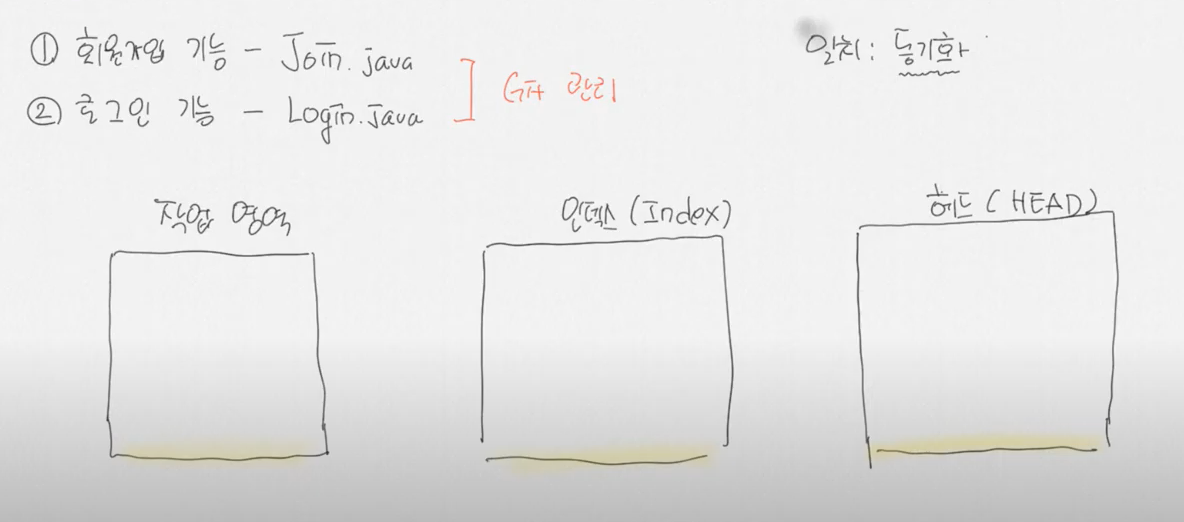 ① 회원가입 기능 - Join.java
② 로그인 기능 - Login.java
Git 관리
일치: 동기화
작업 영역
인덱스 (Index)
헤드 (HEAD)